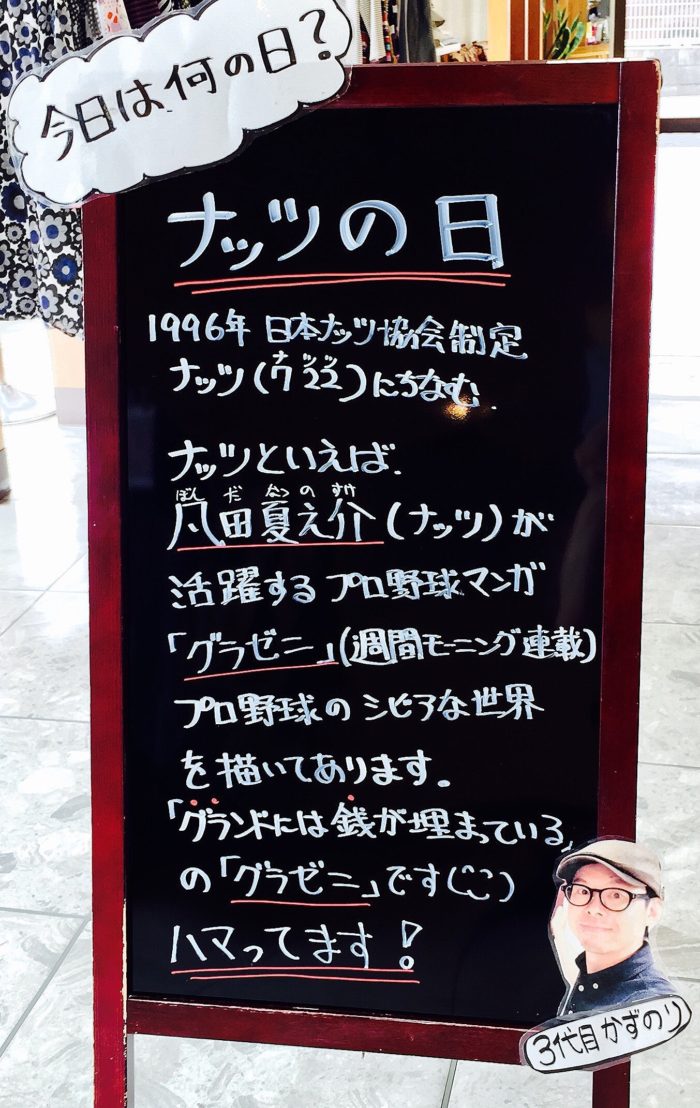 今日は何の日?
ナッツの日
1996年 日本ナッツ協会制定
ナッツ(7 22)にちなむ.
ナ ッツ
ナッツといえば.
ぼん だ なつ の すけ
凡田夏之介(ナッツ)が
活躍するプロ野球マンガ
「グラゼニ」(週間モーニング連載)
プロ野球のシビアな世界
を描いてあります。
「グランドには銭が埋まっている」
の「グラゼニ」です(^^)
ハマってます!
3代目かずのり